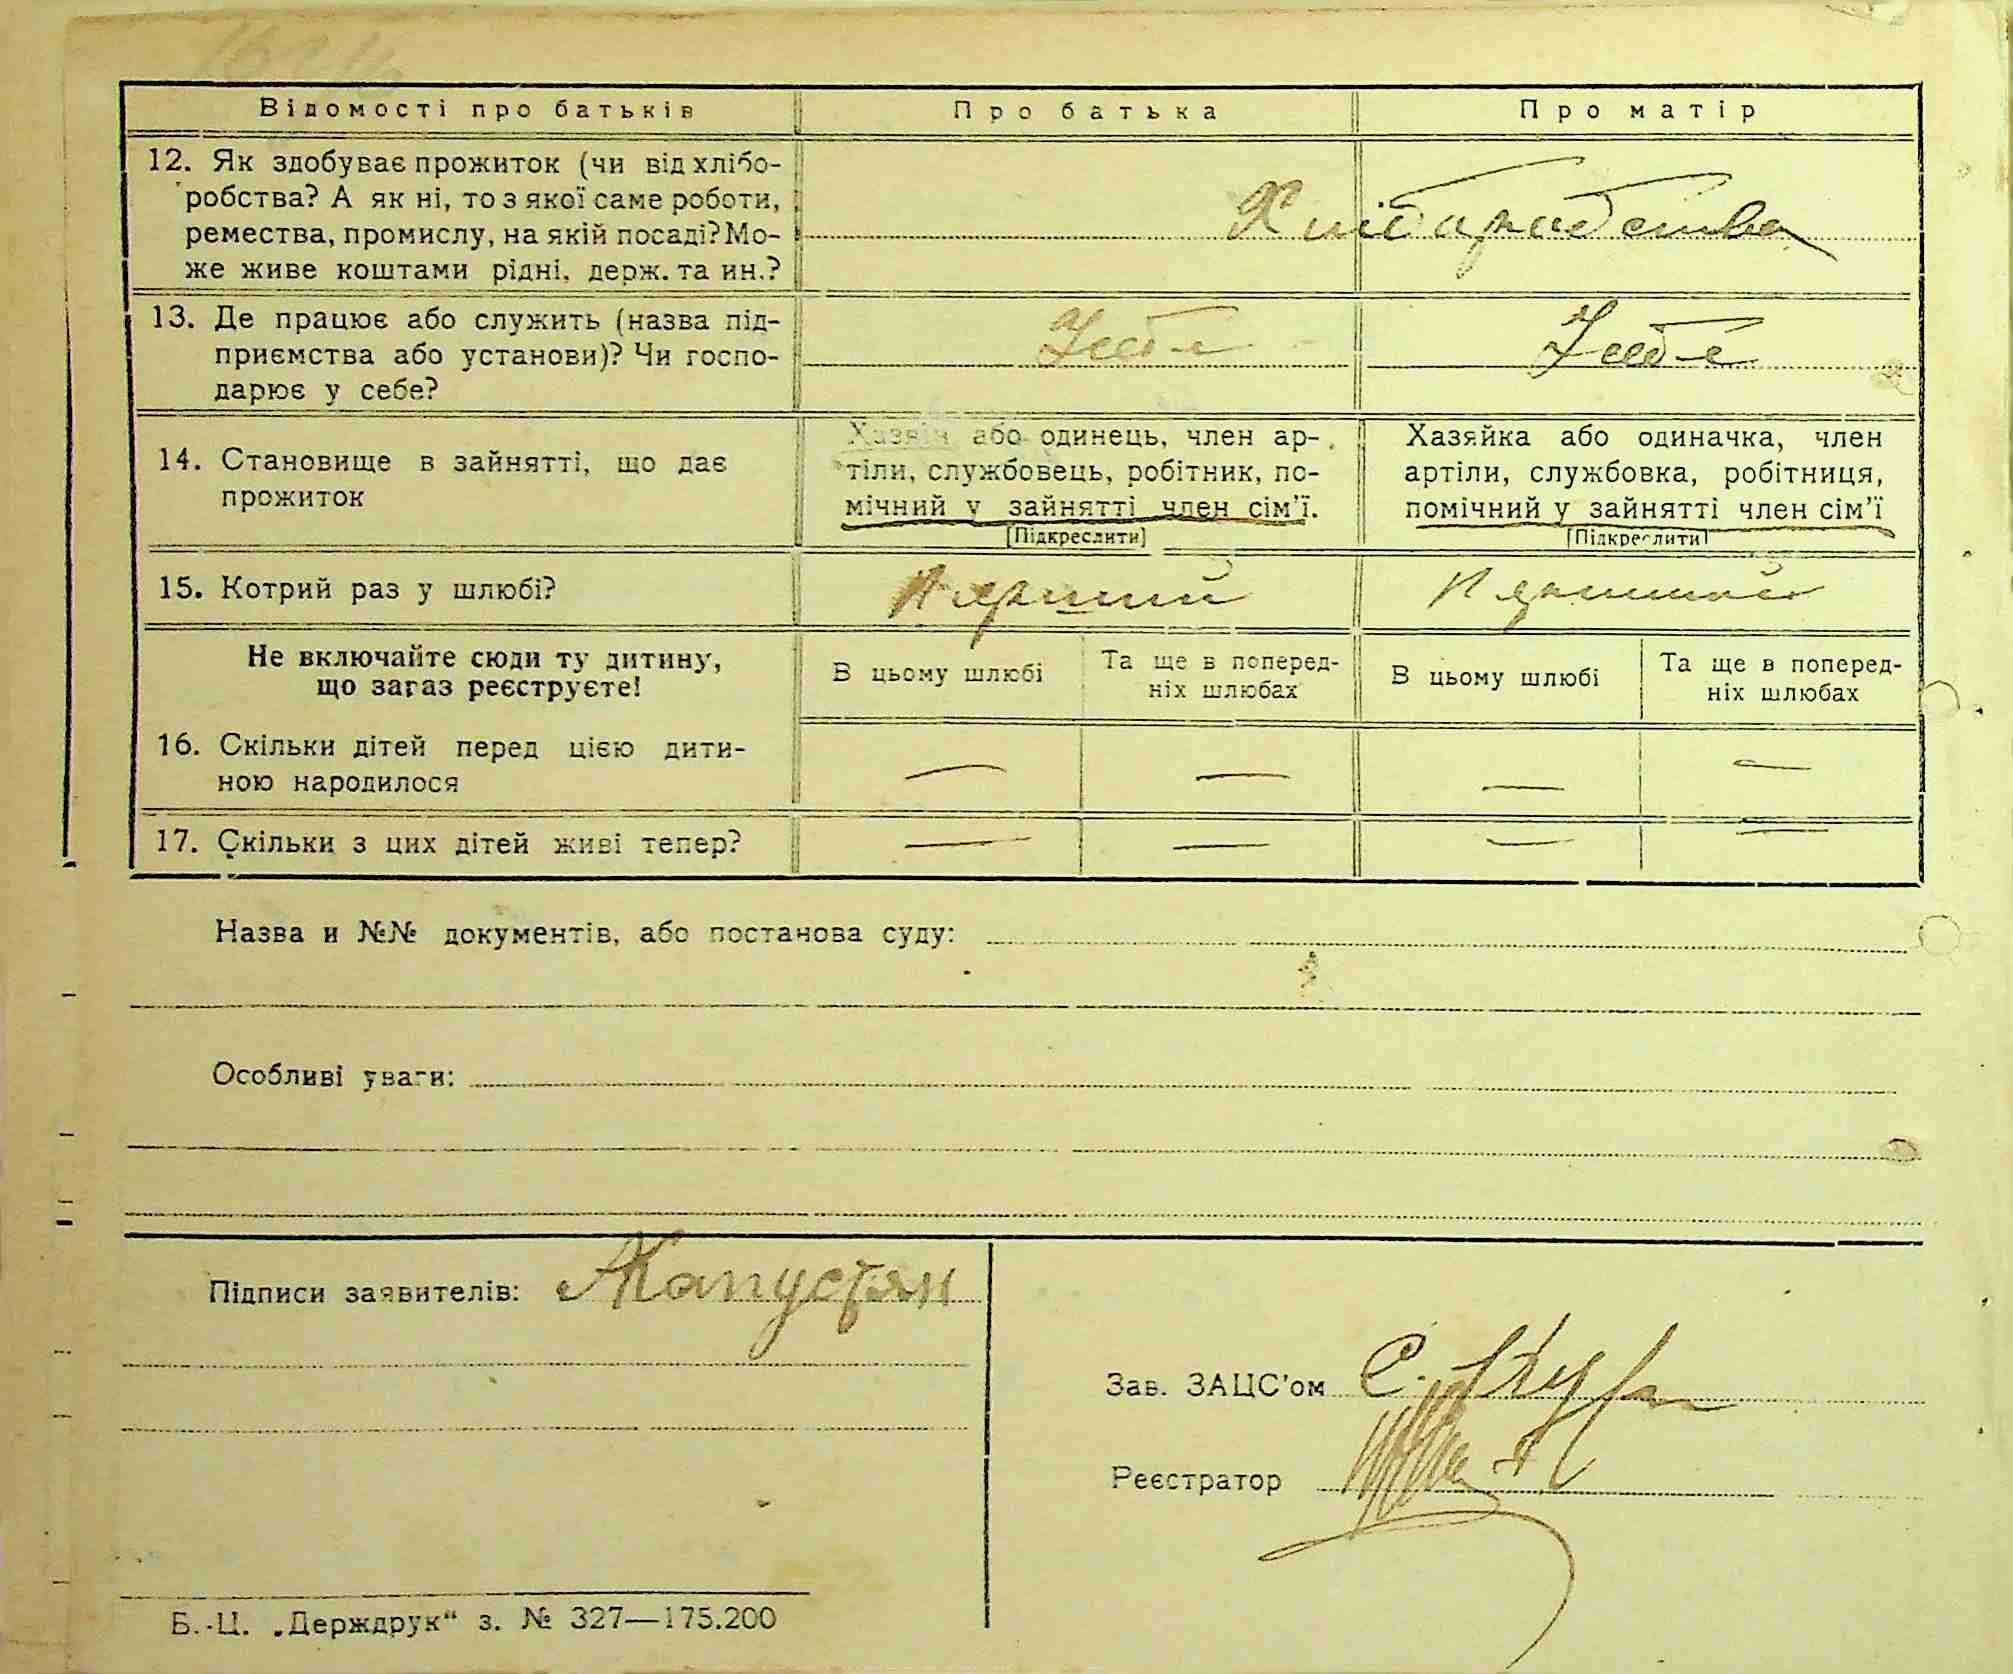 Відомості про батьків Про батька Про матір
12. Як здобуває прожиток (чи від хлібо-
робства? А як ні, то з якої саме роботи,
ремества, промислу, на якій посаді? Мо-
же живе коштами рідні, держ. та ин.?
Хліборобства
13. Де працює або служить (назва під-
приємства або установи)? Чи госпо-
дарює у себе?
У себе У себе
14. Становище в зайнятті, що дає
прожиток
Хазяїн або одинець, член ар-
тіли, службовець, робітник, по-
мічний у зайнятті член сім'ї.
[Підкреслити]
Хазяйка або одиначка, член
артіли, службовка, робітниця,
помічний у зайнятті член сім'ї
[Підкреслити]
15. Котрий раз у шлюбі?
Перший Перший
Не включайте сюди ту дитину,
що зараз реєструєте!
В цьому шлюбі Та ще в поперед-
ніх шлюбах
В цьому шлюбі Та ще в поперед-
ніх шлюбах
16. Скільки дітей перед цією дити-
ною народилося
— — — —
17. Скільки з цих дітей живі тепер?
— — — —
Назва и №№ документів, або постанова суду:
Особливі уваги:
Підписи заявителів: Капустян
Зав. ЗАЦС'ом С.
Реєстратор
Б.-Ц. „Держдрук“ з. № 327—175.200